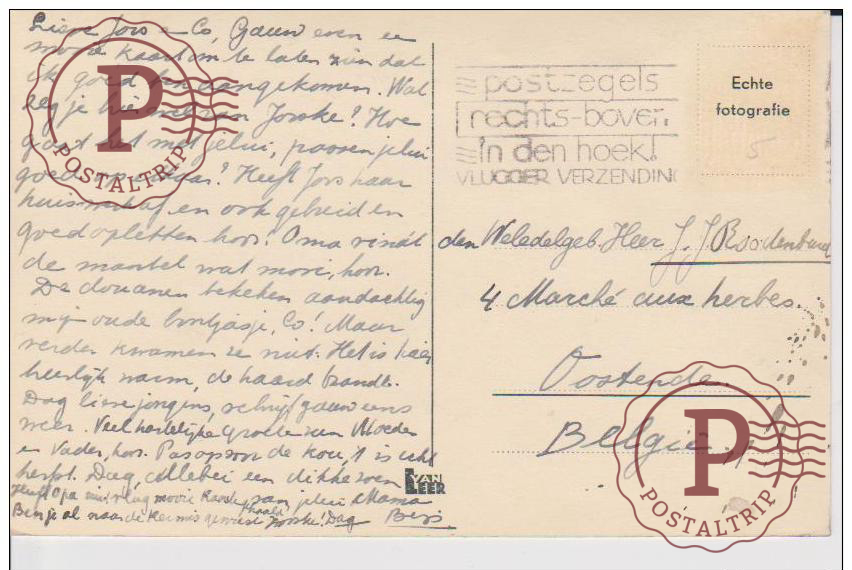 Lieve Jors en Co, Gauw even een
mooie kaart om te laten zien dat
ik goed ben aangekomen. Wat
zeg je hier van Jorske? Hoe
gaat het met jelui, passen jelui
goed op elkaar? Heeft Jors haar
huiswerk af, en ook gebreid en
goed opletten hoor! Oma vindt
de mantel wat mooi, hoor.
De douanen bekeken aandachtig
mijn oude bontjasje, Co! Maar
verder kwamen ze niet. Het is hier
heerlijk warm, de haard brandt.
Dag lieve jongens, schrijf gauw eens
weer. Veel hartelijke groeten van Moeder
en Vader, hoor. Pas op voor de kou, 't is echt
herfst. Dag, allebei een dikke zoen
van jelui Mama
Heeft Opa mooie kaart
Ben je al naar de kermis geweest Jorske! Dag
postzegels
rechts-boven
in den hoek!
VLUGGER VERZENDING
Echte
fotografie
5
den Weledelgeb. Heer J. J.
4 Marché aux herbes.
Oostende.
België.
VAN
LEER
P
POSTALTRIP
P
POSTALTRIP